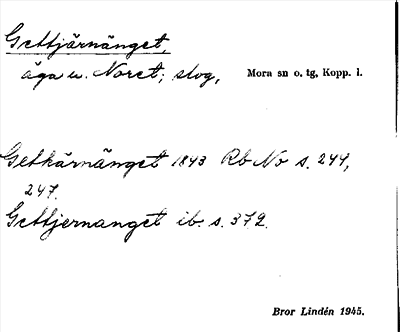 Gettjärnänget,
äga u. Noret; skog, Mora sn o. tg, Kopp. l.
Getkärnänget 1843 Rb No s. 244,
247.
Gettjernanget ib. s. 372.
Bror Lindén 1945.